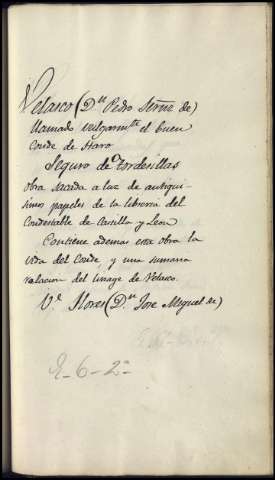 Velasco (Dn Pedro Fernz de)
llamado vulgarmte el buen
Conde de Haro
Seguro de Tordesillas
obra sacada a luz de antiqui-
simos papeles de la libreria del
Condestable de Castilla y Leon
Contiene ademas esta obra la
vida del Conde, y una sumaria
relacion del linage de Velasco.
Ve Flores (Dn Jose Miguel de)
E-6-2a